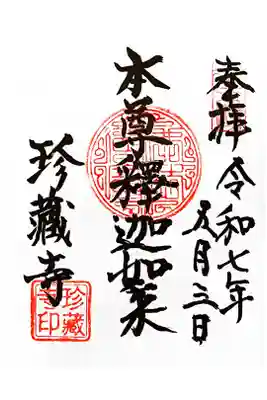 奉拝 令和七年
五月三日
本尊釋迦如来
珍藏寺
珍藏
寺印